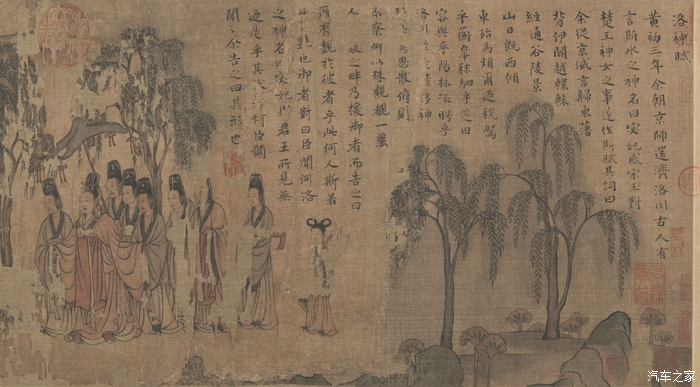 洛神賦
黃初三年余朝京師還濟洛川古人有
言斯水之神名曰宓妃感宋玉對
楚王神女之事遂作斯賦其詞曰
余從京域言歸東藩
背伊闕越轘轅
經通谷陵景
山日既西傾
車殆馬煩爾迺稅駕
乎蘅皋秣駟乎芝田
容與乎陽林流眄乎
洛川於是精移神
思散俯則
未察仰以殊觀觀一麗
人 之畔乃援御者而告之曰
爾有覿於彼者乎此何人斯若
此 豔也御者對曰臣聞河洛
之神名曰宓妃則君王所見無
迺是乎其 何臣願
聞之余告之曰其形也
汽车之家